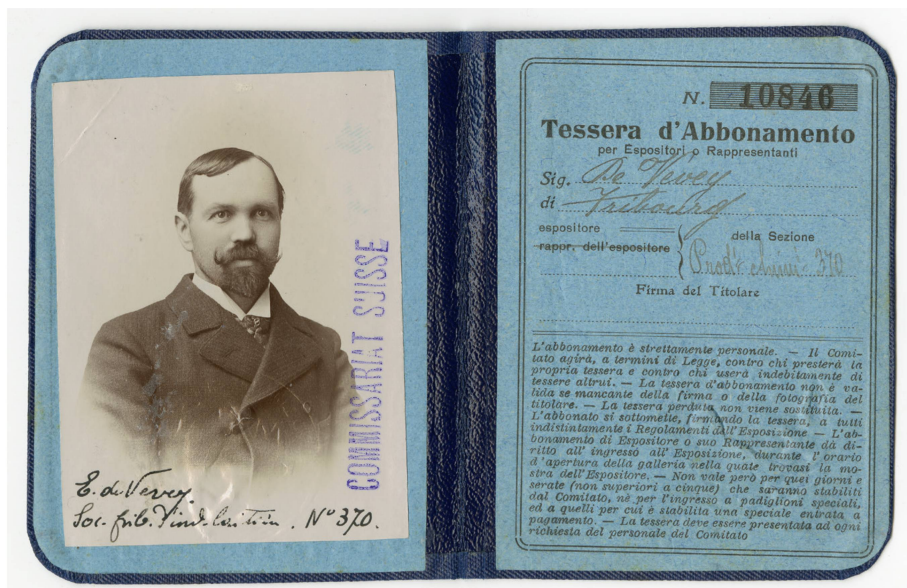 COMMISSARIAT SUISSE
E. de Vevey
Soc. frib. d'industrie. N° 370.
N. 10846
Tessera d'Abbonamento
per Espositori o Rappresentanti
Sig. De Vevey
di Fribourg
espositore
rappr. dell'espositore
della Sezione
Prodts chim. 370
Firma del Titolare
L'abbonamento è strettamente personale. — Il Comi-
tato agirà, a termini di Legge, contro chi presterà la
propria tessera e contro chi userà indebitamente di
tessere altrui. — La tessera d'abbonamento non è va-
lida se mancante della firma o della fotografia del
titolare. — La tessera perduta non viene sostituita. —
L'abbonato si sottomette, firmando la tessera, a tutti
indistintamente i Regolamenti dell'Esposizione — L'ab-
bonamento di Espositore o suo Rappresentante dà di-
ritto all' ingresso all' Esposizione, durante l'orario
d'apertura della galleria nella quale trovasi la mo-
stra dell'Espositore. — Non vale però per quei giorni e
serate (non superiori a cinque) che saranno stabiliti
dal Comitato, nè per l'ingresso a padiglioni speciali,
ed a quelli per cui è stabilita una speciale entrata a
pagamento. — La tessera deve essere presentata ad ogni
richiesta del personale del Comitato